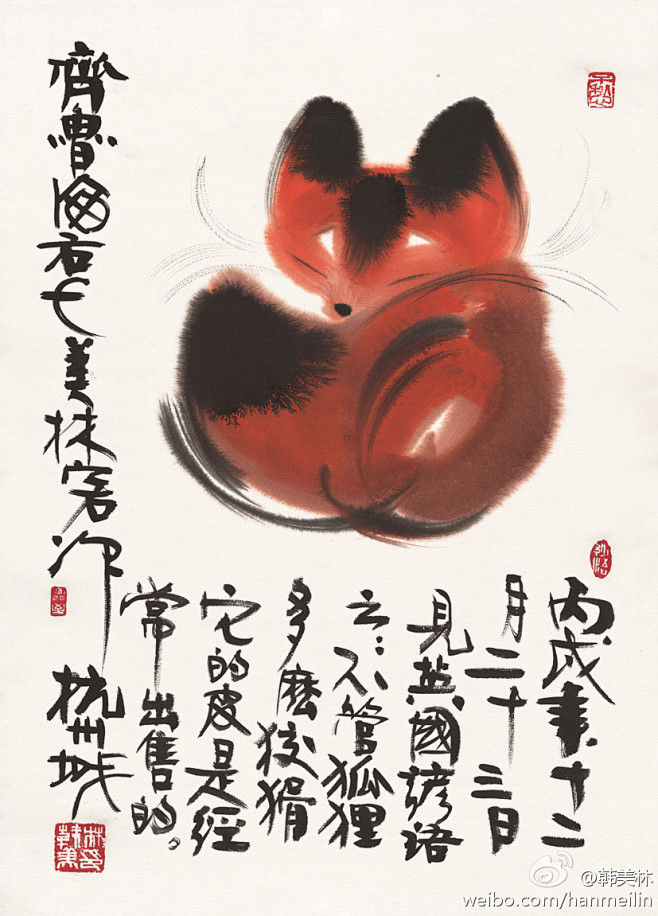 丙戌年十二
月二十三日
見英國諺語
云:不管狐狸
多麼狡猾
它的皮是經
常出售的。
齊魯海右美林客次
杭州城
@韩美林
weibo.com/hanmeilin